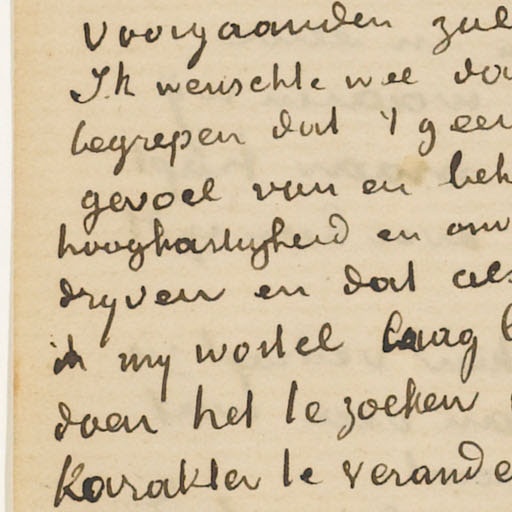 voorgaanden zul
Ik wenschte wel da
begrepen dat 't geen
gevoel van en beh
hooghartigheid en om
dryven en dat als
ik my wortel laag b
doen het te zoeken
karakter te verande